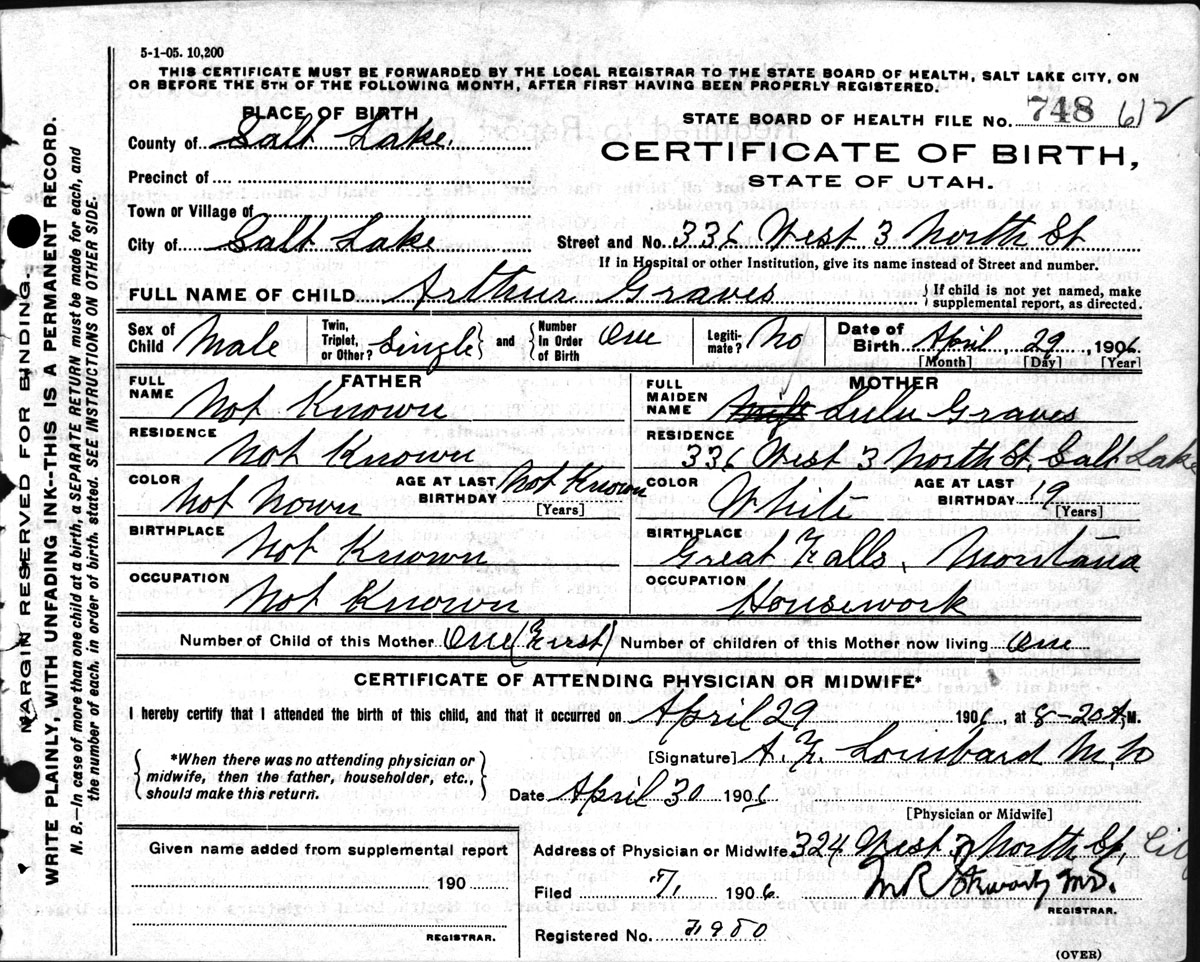 5-1-05. 10,200
THIS CERTIFICATE MUST BE FORWARDED BY THE LOCAL REGISTRAR TO THE STATE BOARD OF HEALTH, SALT LAKE CITY, ON
OR BEFORE THE 5TH OF THE FOLLOWING MONTH, AFTER FIRST HAVING BEEN PROPERLY REGISTERED.
PLACE OF BIRTH
STATE BOARD OF HEALTH FILE NO. 748 612
County of Salt Lake.
CERTIFICATE OF BIRTH,
STATE OF UTAH.
Precinct of
Town or Village of
City of Salt Lake Street and No. 336 West 3 North St
If in Hospital or other Institution, give its name instead of Street and number.
FULL NAME OF CHILD Arthur Graves { If child is not yet named, make supplemental report, as directed.
Sex of Child Male Twin, Triplet, or Other? Single } and { Number In Order of Birth One Legiti-mate? No Date of Birth April, 29, 1906.
[Month] [Day] [Year]
FATHER MOTHER
FULL NAME Not Known FULL MAIDEN NAME Lulu Graves
RESIDENCE Not Known RESIDENCE 336 West 3 North St, Salt Lake
COLOR Not Nown AGE AT LAST BIRTHDAY Not Known [Years] COLOR White AGE AT LAST BIRTHDAY 19 [Years]
BIRTHPLACE Not Known BIRTHPLACE Great Falls, Montana
OCCUPATION Not Known OCCUPATION Housework
Number of Child of this Mother One (First) Number of children of this Mother now living One
CERTIFICATE OF ATTENDING PHYSICIAN OR MIDWIFE*
I hereby certify that I attended the birth of this child, and that it occurred on April 29 1906, at 8-20 A M.
*When there was no attending physician or midwife, then the father, householder, etc., should make this return.
[Signature] A. F. Lombard M.D
Date April 30 1906
[Physician or Midwife]
Given name added from supplemental report
190
REGISTRAR.
Address of Physician or Midwife 324 West 3 North St, City
Filed 1906. M.D.
REGISTRAR.
Registered No.
(OVER)
MARGIN RESERVED FOR BINDING-
WRITE PLAINLY, WITH UNFADING INK--THIS IS A PERMANENT RECORD.
N. B.—In case of more than one child at a birth, a SEPARATE RETURN must be made for each, and
the number of each, in order of birth, stated. SEE INSTRUCTIONS ON OTHER SIDE.